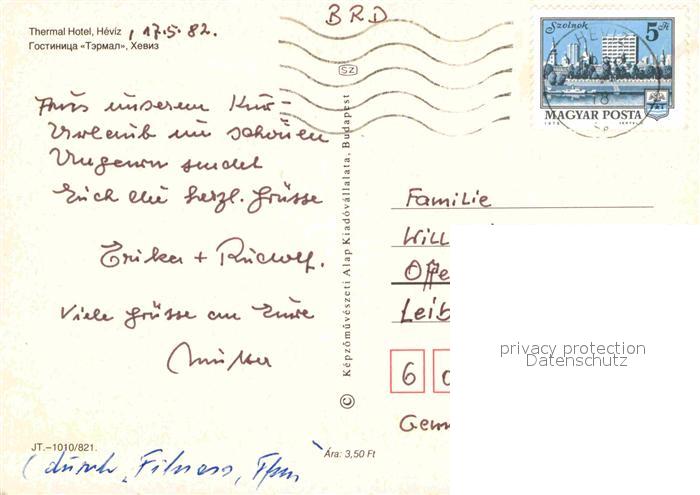 BRD
Thermal Hotel, Hévíz, 17.5.82.
Гостиница «Тэрмал», Хевиз
SZ
Szolnok 5 Ft
MAGYAR POSTA
1975
HEVIZ
Aus unserem Kur-
Urlaub im schönen
Ungarn sendet
Euch die herzl. Grüsse
Erika + Rudolf.
Viele Grüsse an Eure
Mutter
© Képzőművészeti Alap Kiadóvállalata, Budapest
Familie
Will
Offe
Leib
6
Germ
privacy protection
Datenschutz
JT.–1010/821.
Ára: 3,50 Ft
(durch "Fitness,